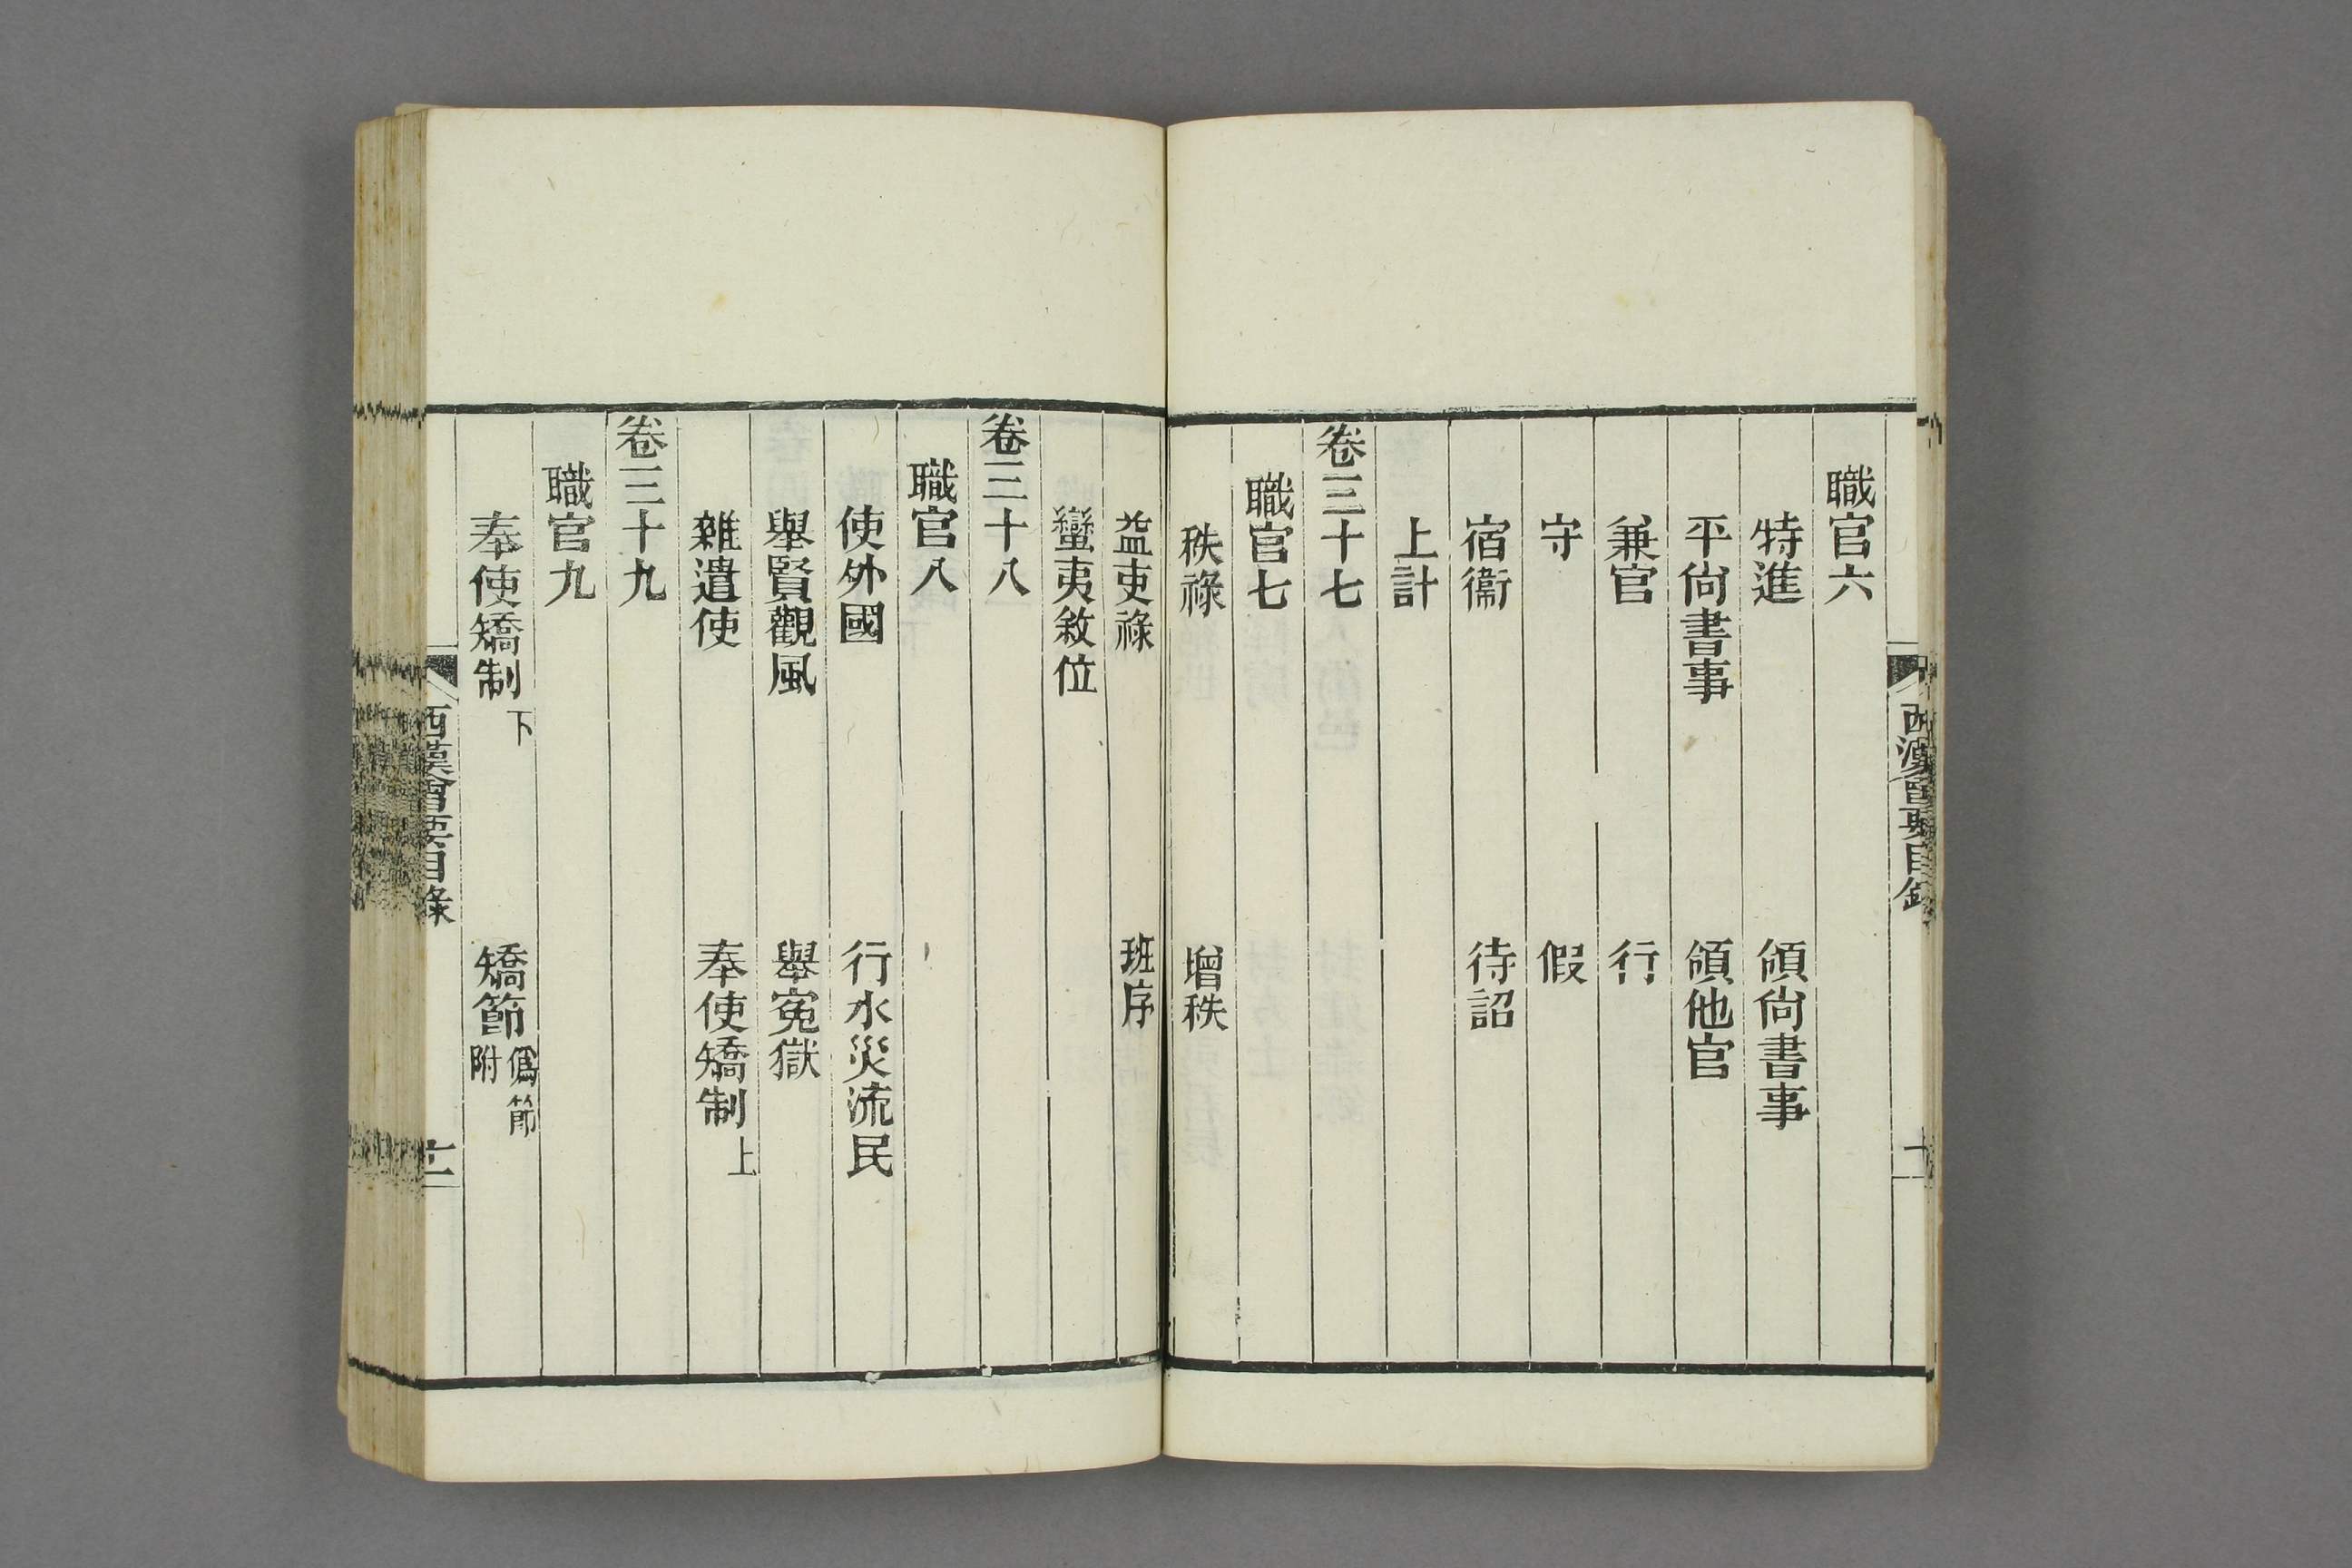 職官六
特進 領尙書事
平尙書事 領他官
兼官 行
守 假
宿衞 待詔
上計
卷三十七
職官七
秩祿 增秩
益吏祿 班序
蠻夷敘位
卷三十八
職官八
使外國 行水災流民
舉賢觀風 舉寃獄
雜遣使 奉使矯制上
卷三十九
職官九
奉使矯制下 矯節僞節附
西漢會要目錄